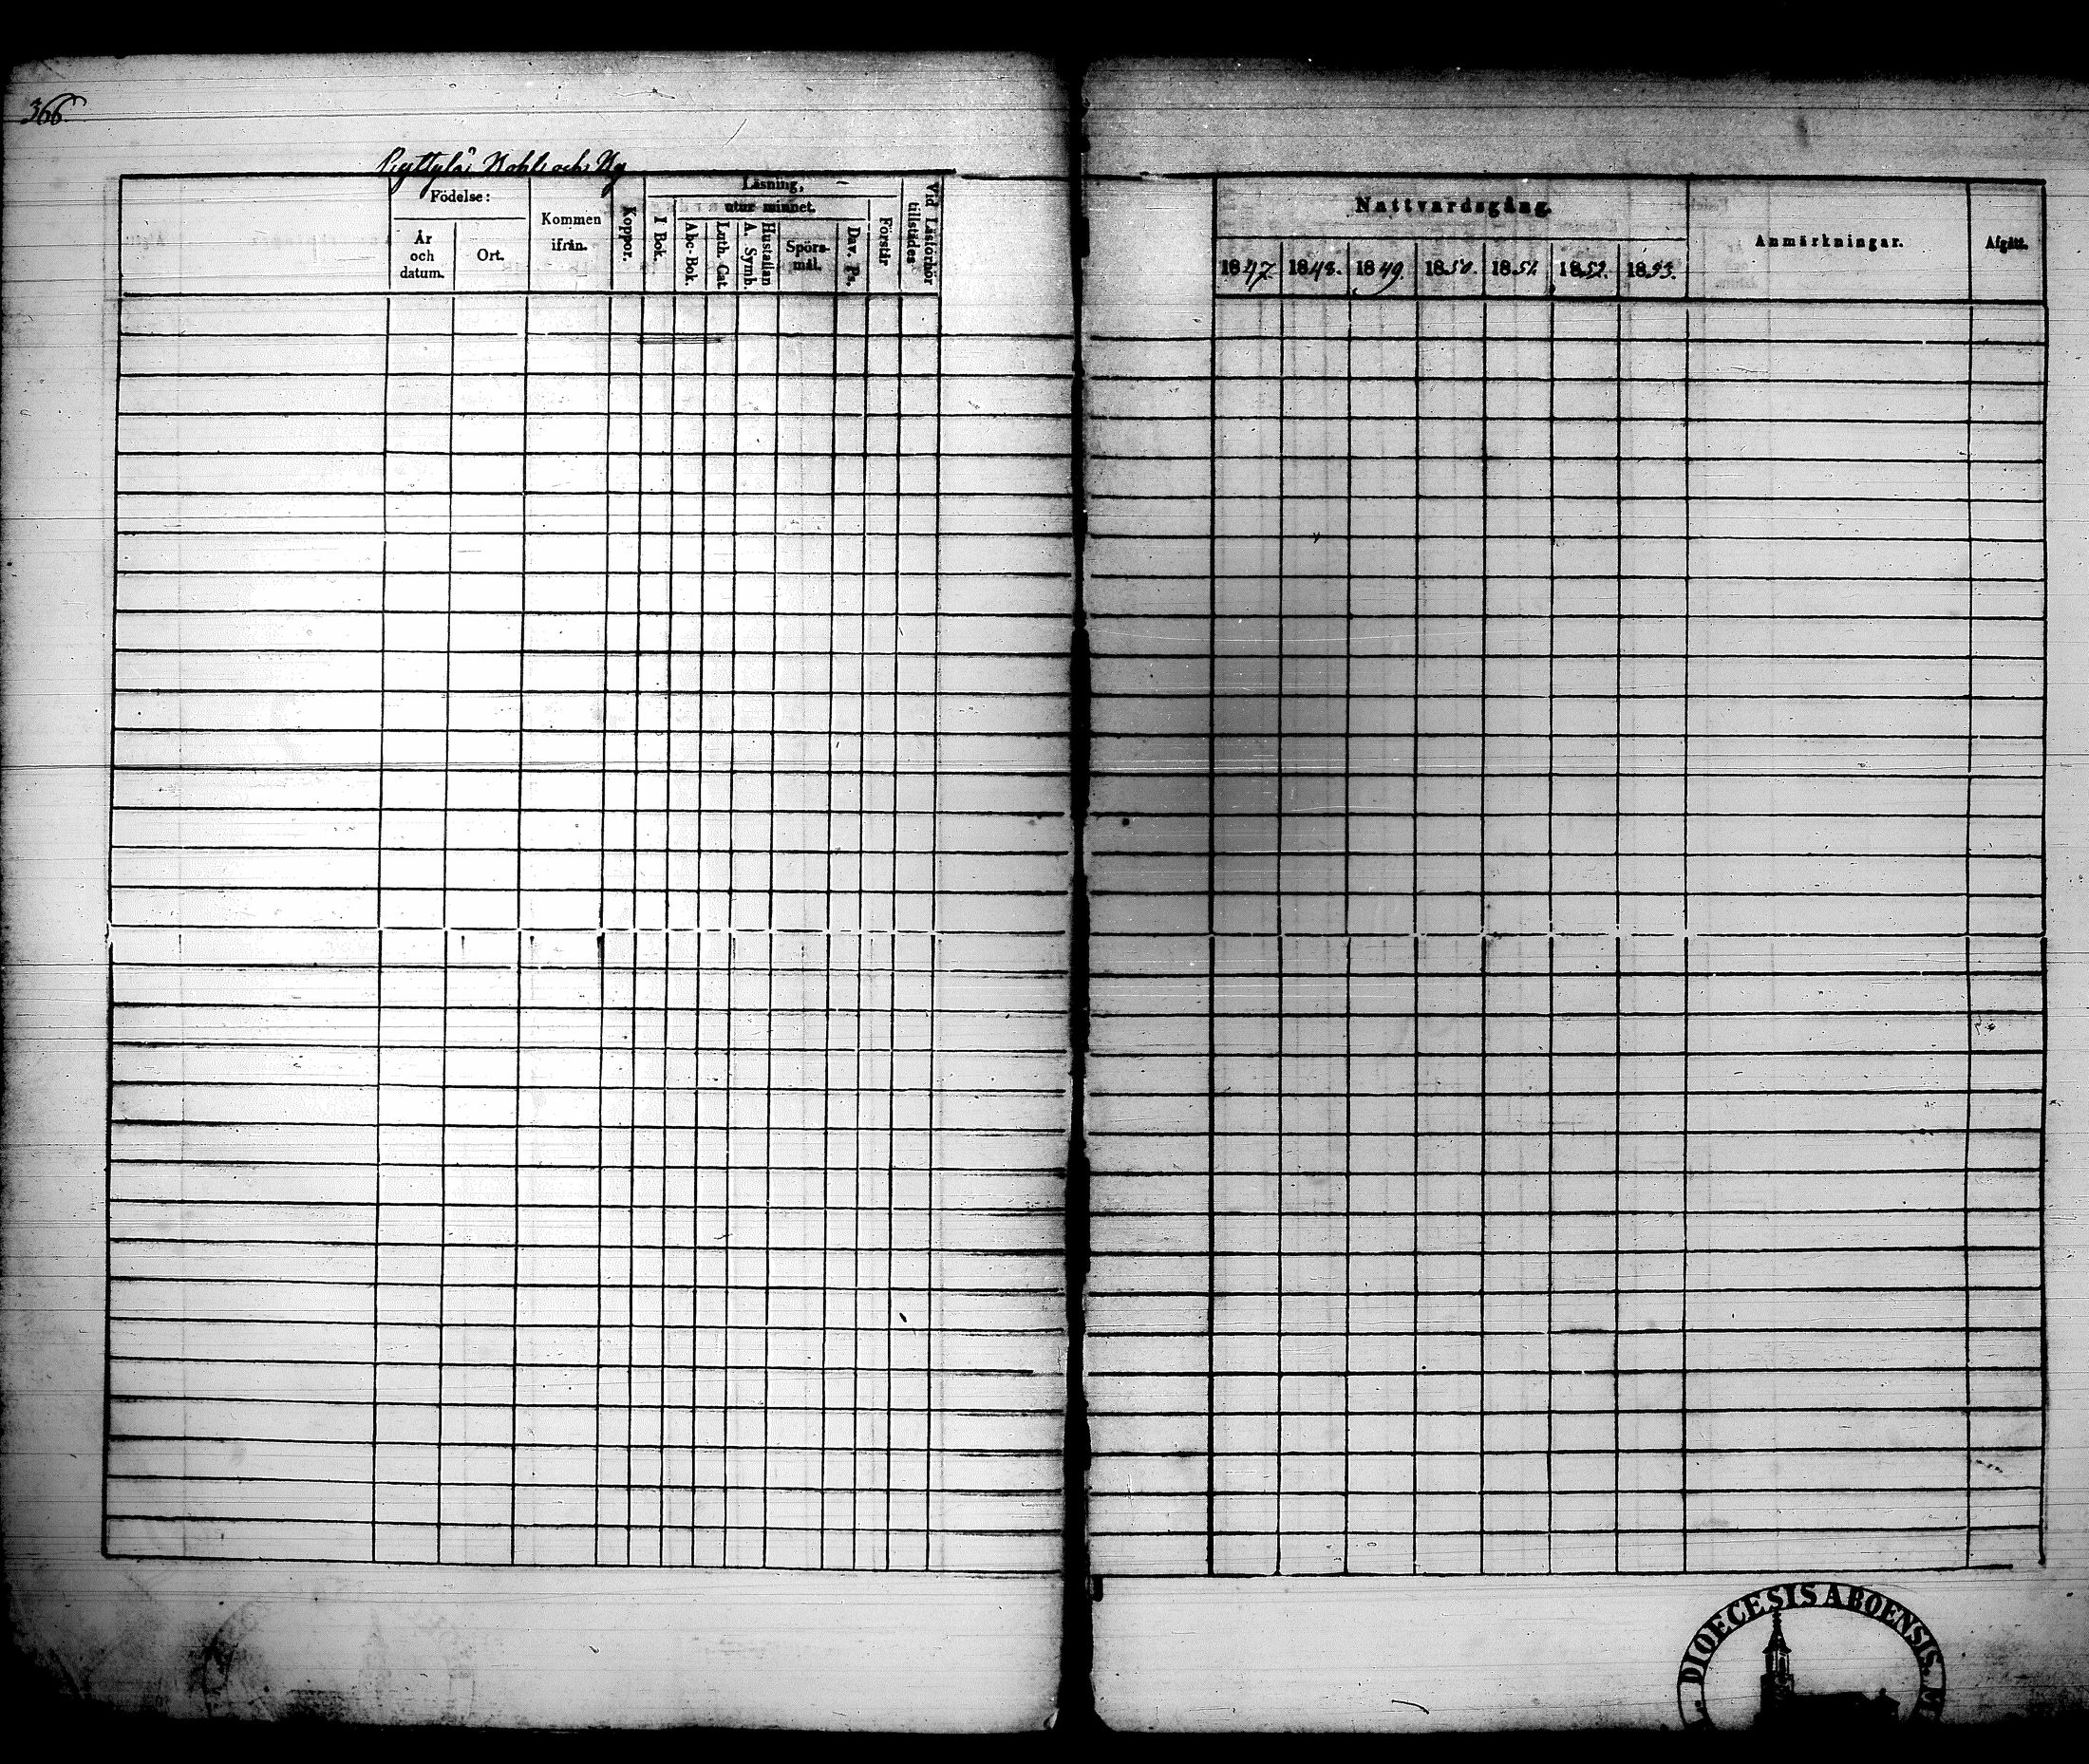 366
Ryttylä
Födelse:
År och datum.
Ort.
Kommen ifrån.
Koppor.
Läsning,
utur minnet.
I Bok.
Abc-Bok.
Luth. Cat.
A. Symb.
Hustaflan
Spörs-mål.
Dav. Ps.
Förstår
Vid Läsförhör tillstädes
Nattvardsgång.
1847. 1848. 1849. 1850. 1851. 1852. 1853.
Anmärkningar.
Afgått.
DIOECESIS ABOENSIS.